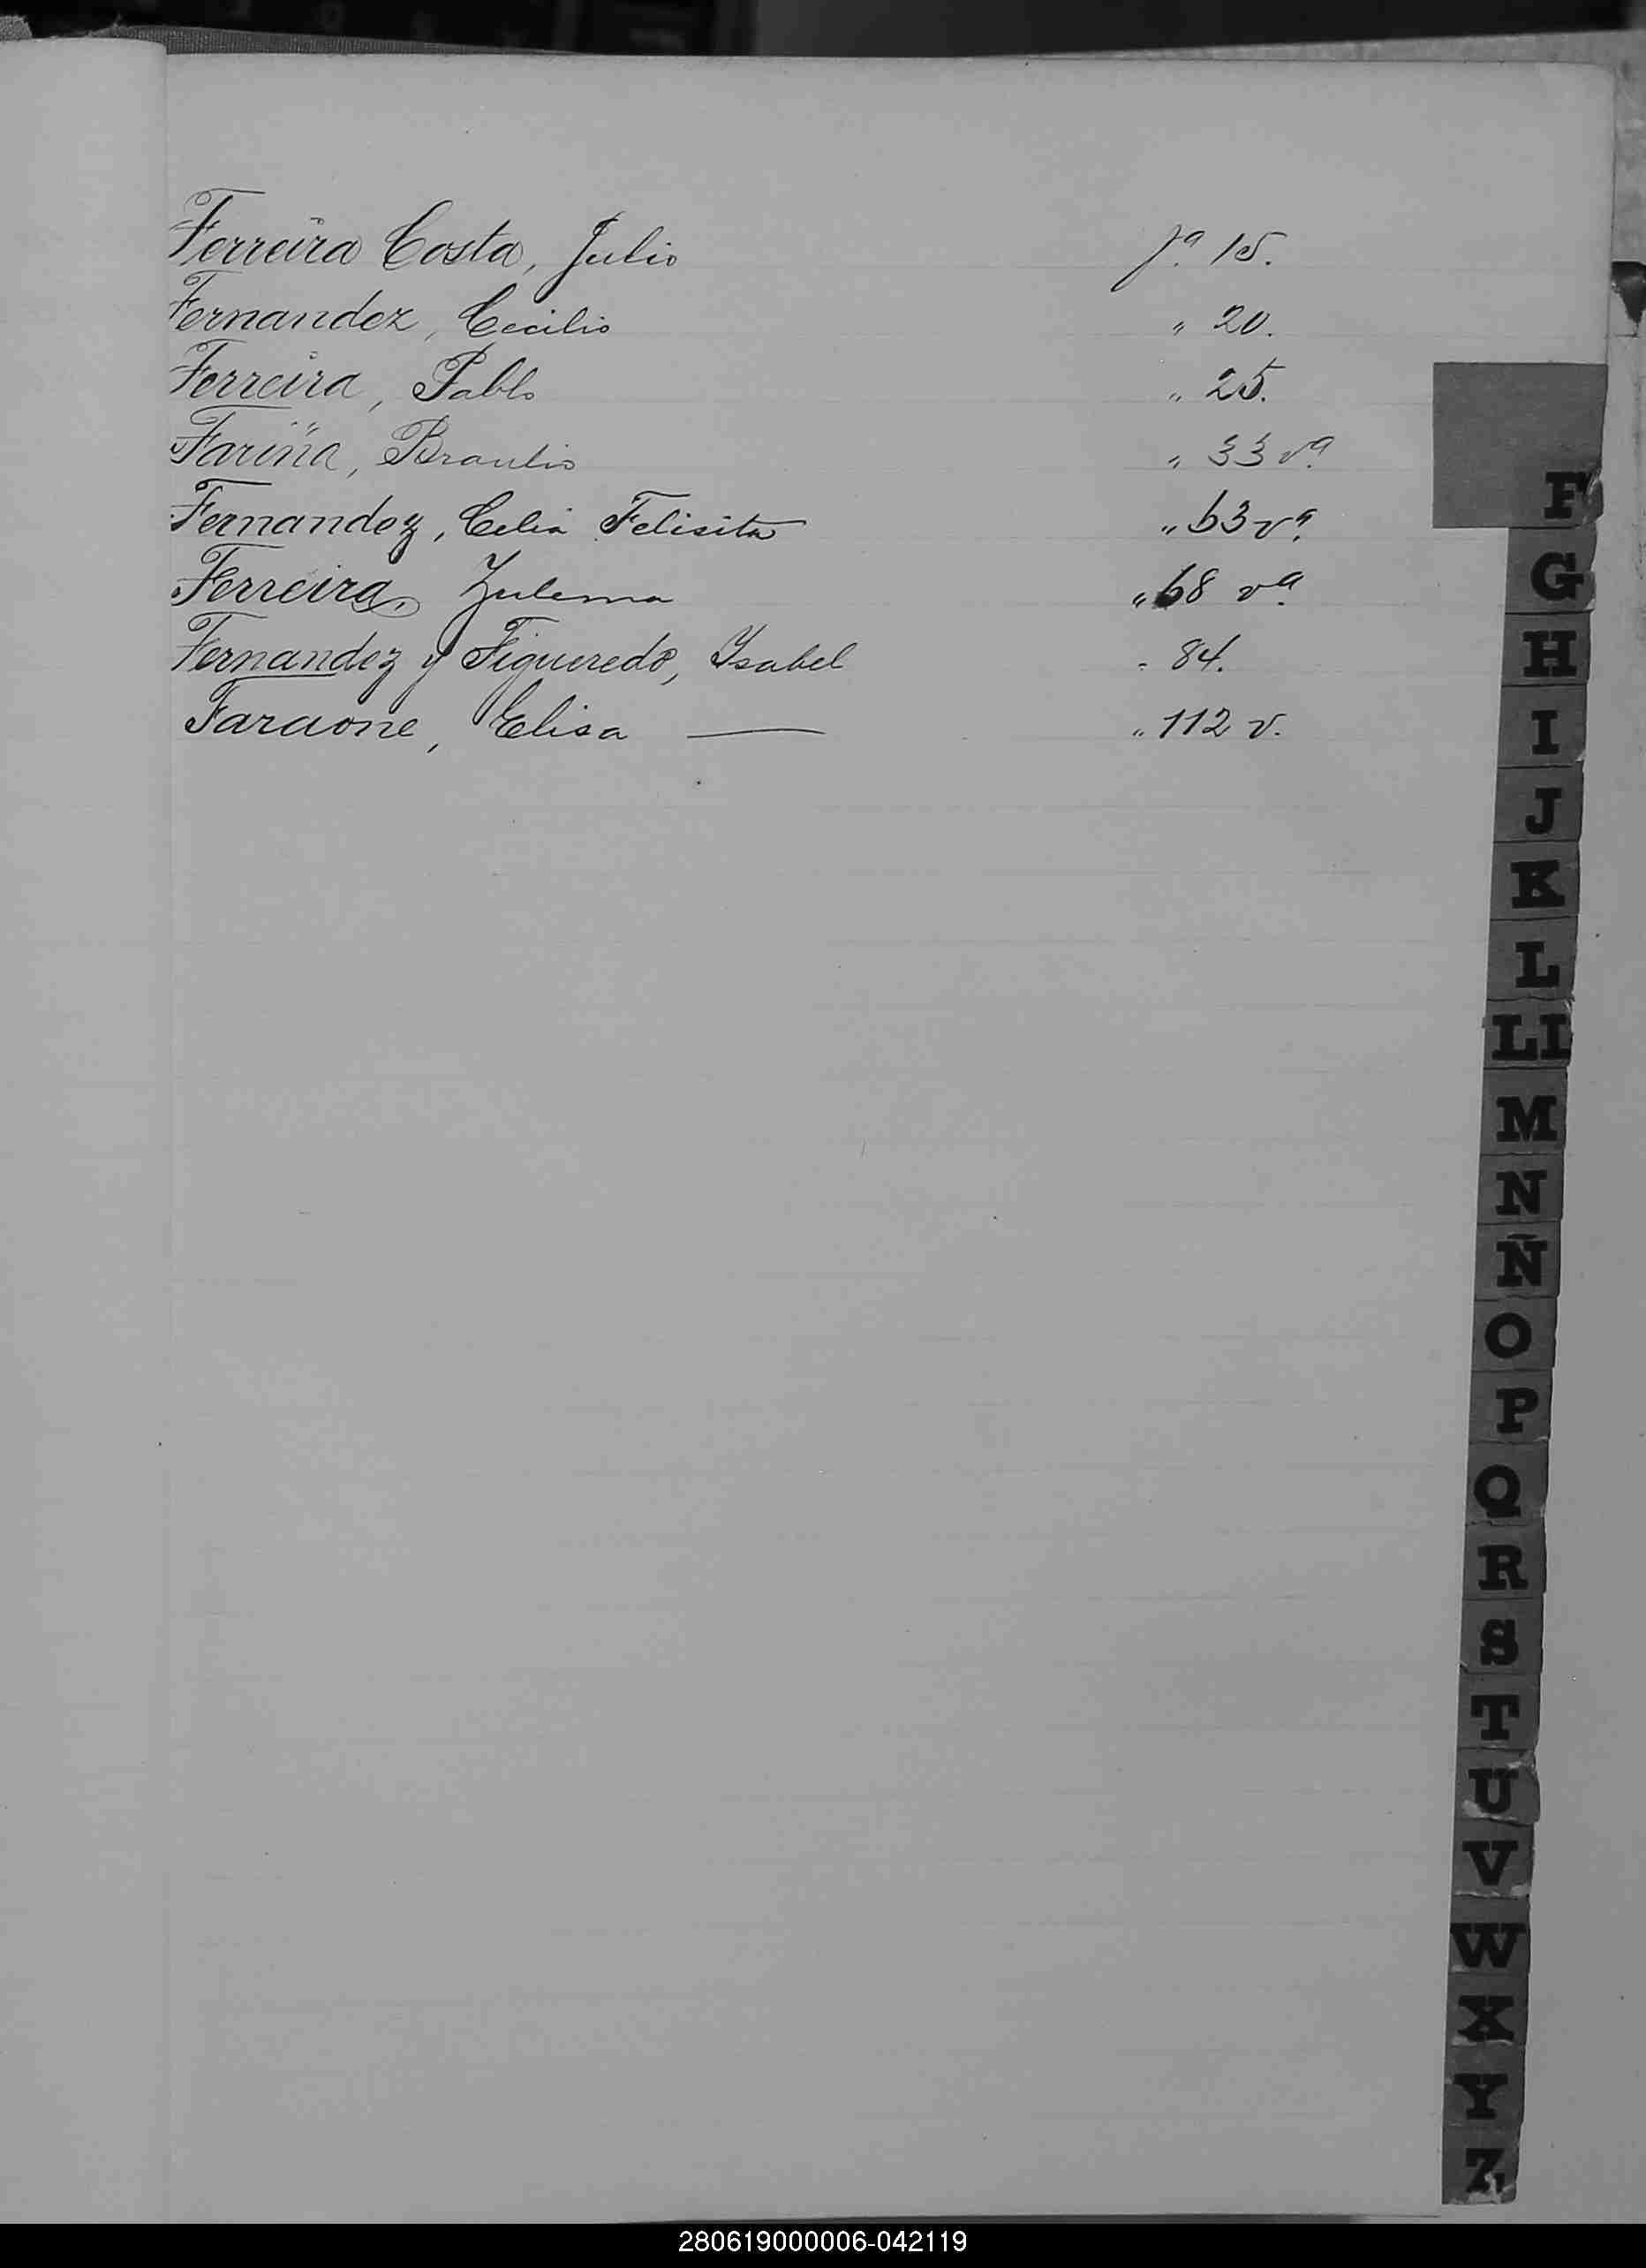 Ferreira Costa, Julio fª 15.
Fernandez, Cecilio " 20.
Ferreira, Pablo " 25.
Fariña, Braulio " 33 vª
Fernandez, Celia Felisita " 63 vª
Ferreira, Zulema " 68 vª
Fernandez y Figueredo, Isabel " 84.
Faraone, Elisa — " 112 v.
F
G
H
I
J
K
L
Ll
M
N
Ñ
O
P
Q
R
S
T
U
V
W
X
Y
Z
280619000006-042119